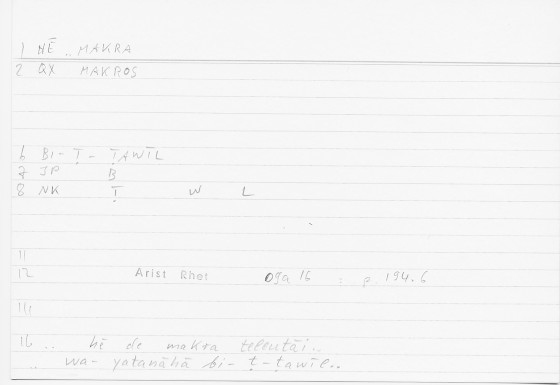 1 HĒ .. MAKRA
2 QX MAKROS
6 BI- Ṭ - ṬAWĪL
7 JP B
8 NK Ṭ W L
11
12 Arist Rhet 09a 16 : p. 194.6
14
16 .. hē de makra teleutāi..
.. wa- yatanāhā bi- ṭ - ṭawīl..